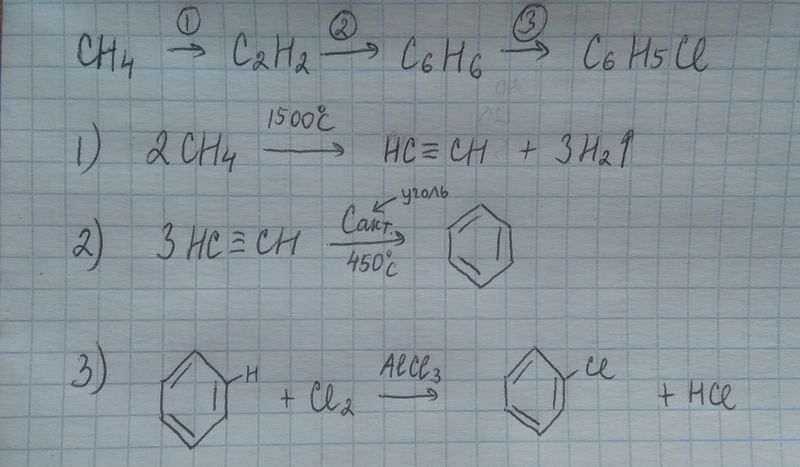 CH4 ① → C2H2 ② → C6H6 ③ → C6H5Cl
1) 2CH4 1500°C → HC≡CH + 3H2↑
уголь
2) 3HC≡CH Cакт. → 450°C
3) H + Cl2 AlCl3 → Cl + HCl